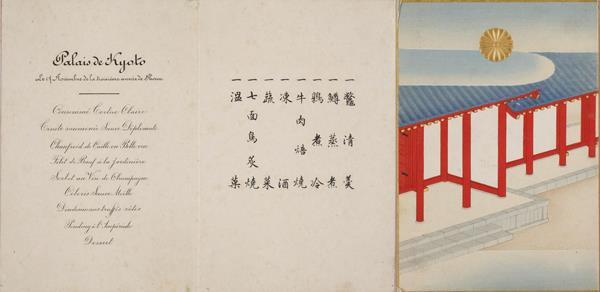 Palais de Kyoto
Le 17 Novembre de la troisième année de Showa
Consommé Tortue Claire
Truite saumonée Sauce Diplomate
Chaufroid de Caille en Belle vue
Filet de Bœuf à la Jardinière
Sorbet au Vin de Champagne
Céleris Sauce Moelle
Dindonneaux truffés rôtis
Pouding à l'Impériale
Dessert
一鼈清羹
一鱒蒸煮
一鶉煮冷
一牛肉焙燒
一凍酒
一蔬菜
一七面鳥炙燒
一温菓